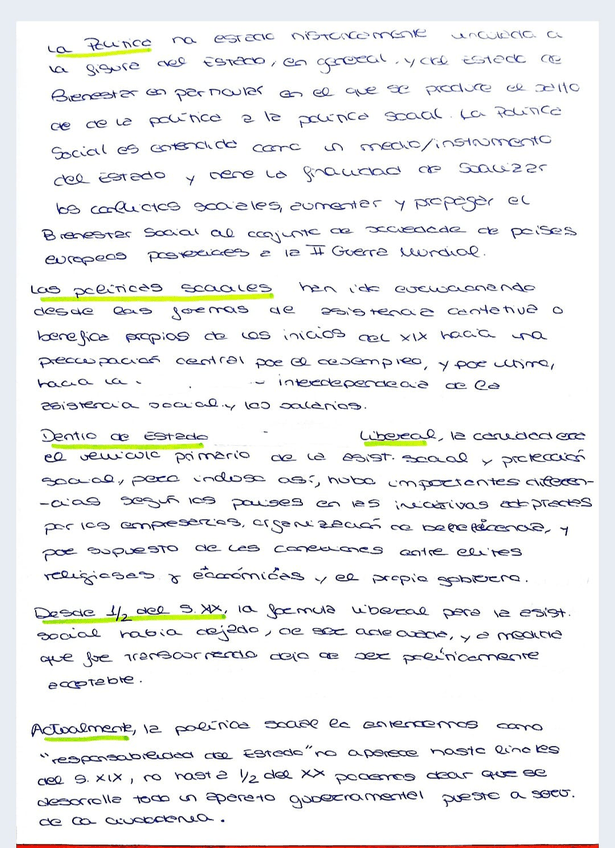 La Política ha estado históricamente vinculada a
la figura del Estado, en general y del Estado de
Bienestar en particular en el que se produce el salto
de de la política a la política social. La Política
Social es entendida como un medio/instrumento
del Estado y tiene la finalidad de socializar
los conflictos sociales, aumentar y propagar el
Bienestar Social al conjunto de sociedade de países
europeos posteriores a la II Guerra Mundial.
Las políticas sociales han ido evolucionando
desde las formas de asistencia caritativa o
benefica propios de los inicios del XIX hacia una
preocupación central por el desempleo, y por último,
hacia la interdependencia de la
asistencia social y los salarios.
Dentro de Estado Liberal, la caridad era
el vehículo primario de la asist. social y protección
social, pero incluso así, hubo importantes diferen-
-cias según los países en las iniciativas adoptadas
por los empresarios, organización de beneficencia, y
por supuesto de las conexiones entre elites
religiosas y económicas y el propio gobierno.
Desde 1/2 del S. XX, la formula liberal para la asist.
social había dejado, de ser adecuada, y a medida
que fue transcurriendo dejo de ser políticamente
aceptable.
Actualmente, la política social la entendemos como
"responsabilidad del Estado" no aparece hasta finales
del S. XIX, no hasta 1/2 del XX podemos decir que se
desarrolla todo un aparato gubernamental puesto a serv.
de la ciudadanía.